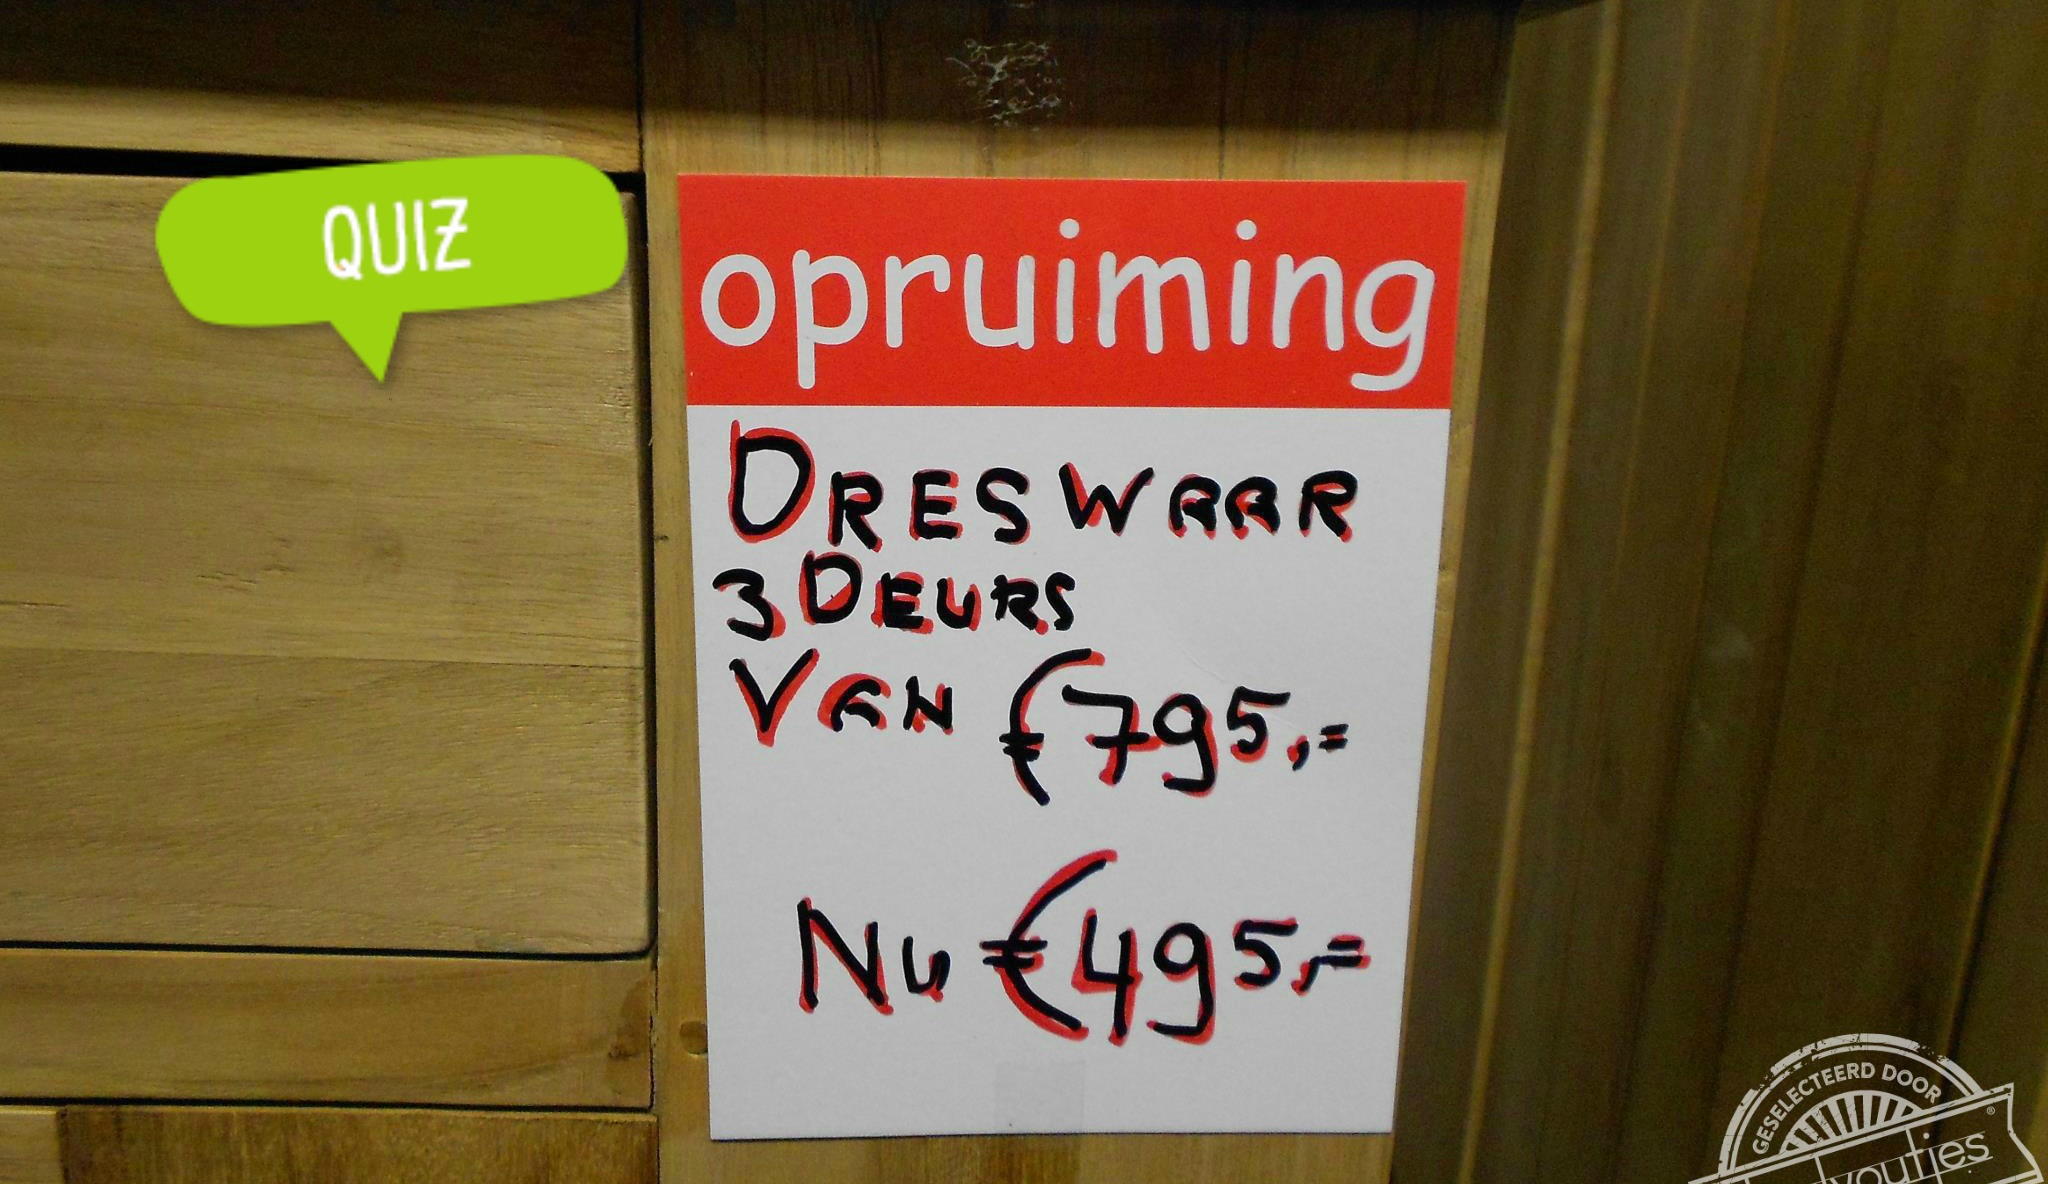 QUIZ
opruiming
DRESWAAR
3 DEURS
VAN €795,=
NU €495,=
GESELECTEERD DOOR